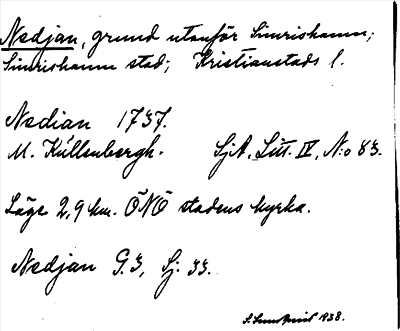 Nedjan, grund utanför Simrishamn;
Simrishamn stad; Kristianstads l.
Nedian 1737.
M. Kúllenbergh. SjA, Litt. IV, N:o 83.
Läge 2,9 km. ÖNÖ stadens kyrka.
Nedjan G.3, Sj: 33.
1938.